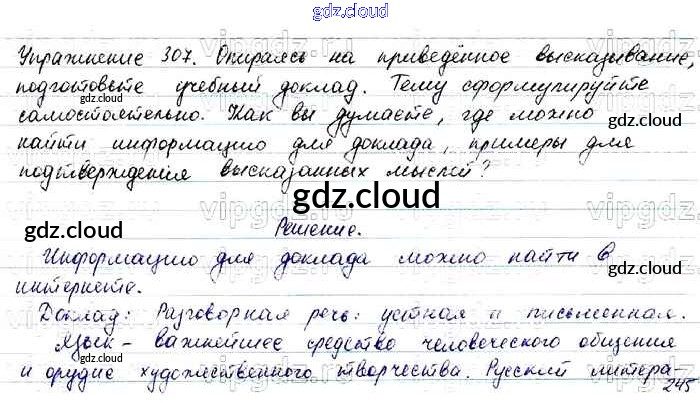 gdz.cloud
Упражнение 307. Опираясь на приведённое высказывание,
подготовьте учебный доклад. Тему сформулируйте
gdz.cloud
gdz.cloud
самостоятельно. Как вы думаете, где можно
gdz.cloud
найти информацию для доклада, примеры для
подтверждения высказанных мыслей?
gdz.cloud
gdz.cloud
Решение.
gdz.cloud
Информацию для доклада можно найти в
gdz.cloud
интернете.
Доклад: Разговорная речь: устная и письменная.
Язык - важнейшее средство человеческого общения
gdz.cloud
и орудие художественного творчества. Русский литера-
gdz.cloud
245